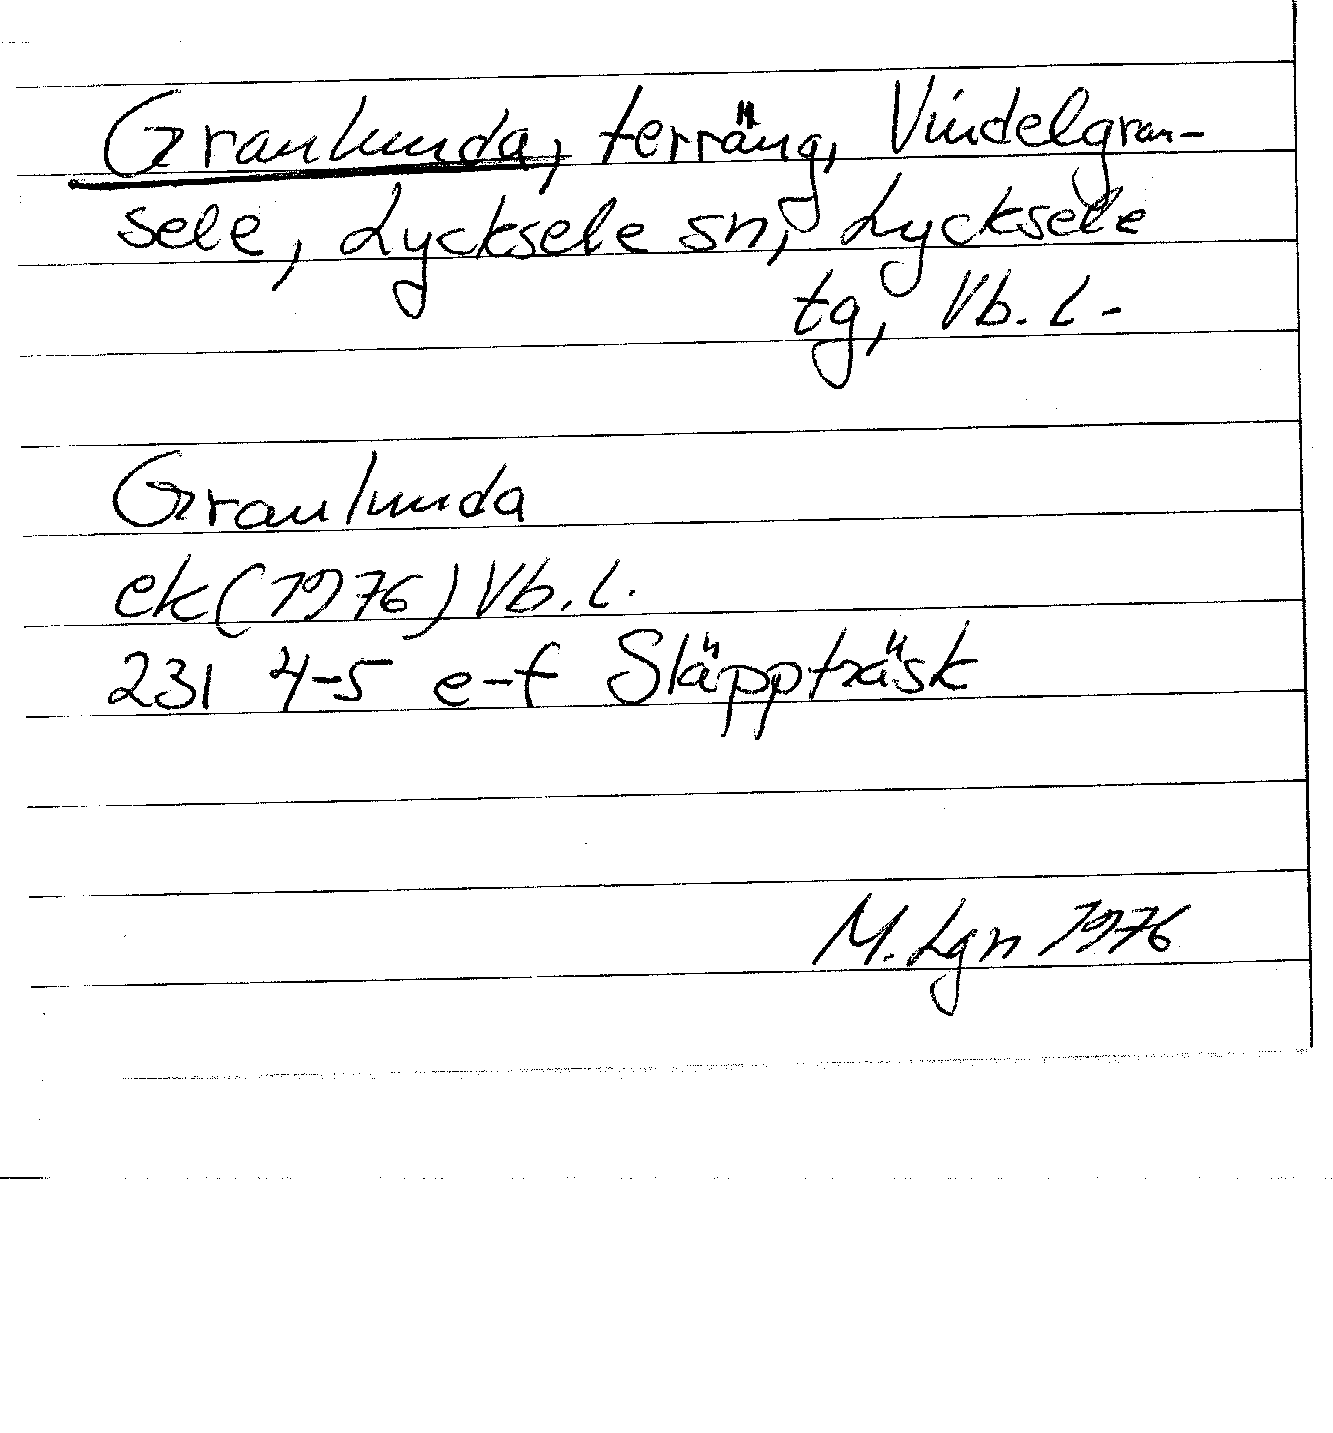 Granlunda, terräng, Vindelgran-
sele, Lycksele sn, Lycksele
tg, Vb. l.
Granlunda
ek (1976) Vb. l.
231 4-5 e-f Släppträsk
M. Lgn 1976